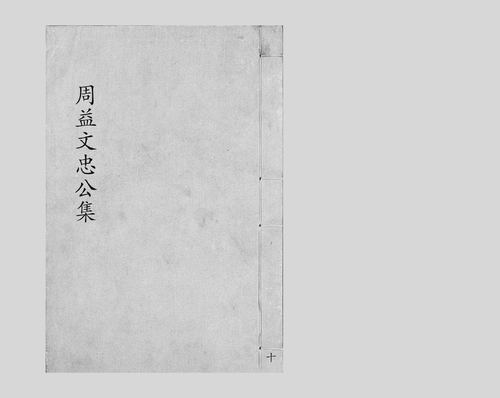 周益文忠公集
十